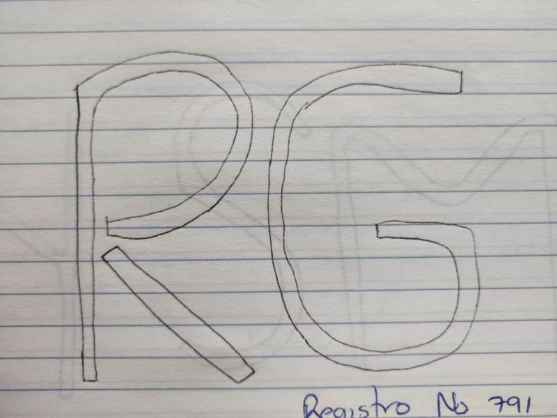 RG
Registro No 791